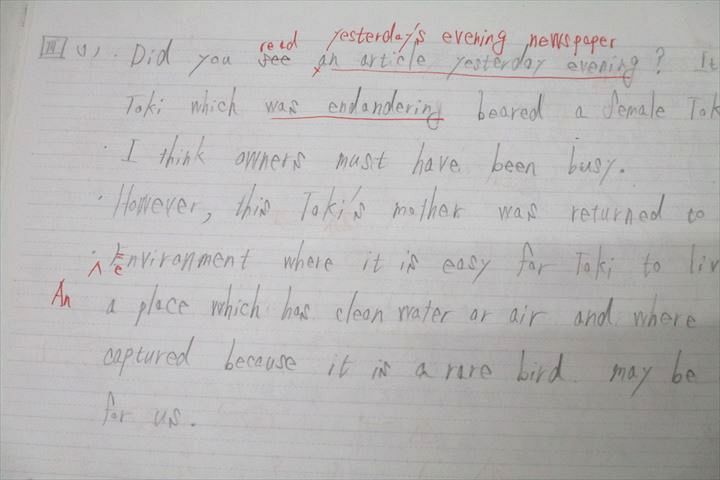 read yesterday's evening newspaper
III (1). Did you see an article yesterday evening? It
Toki which was endandering beared a female Tok
· I think owners must have been busy.
· However, this Toki's mother was returned to
· Environment where it is easy for Toki to liv
e
An a place which has clean water or air and where
captured because it is a rare bird. may be
for us.